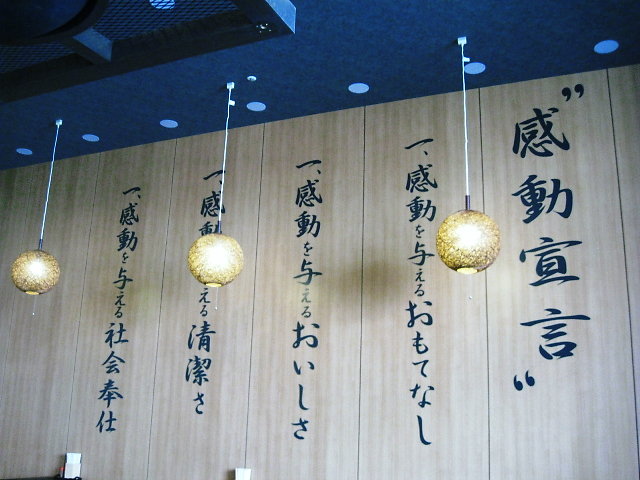 ”感動宣言“
一、感動を与えるおもてなし
一、感動を与えるおいしさ
一、感動を与える清潔さ
一、感動を与える社会奉仕